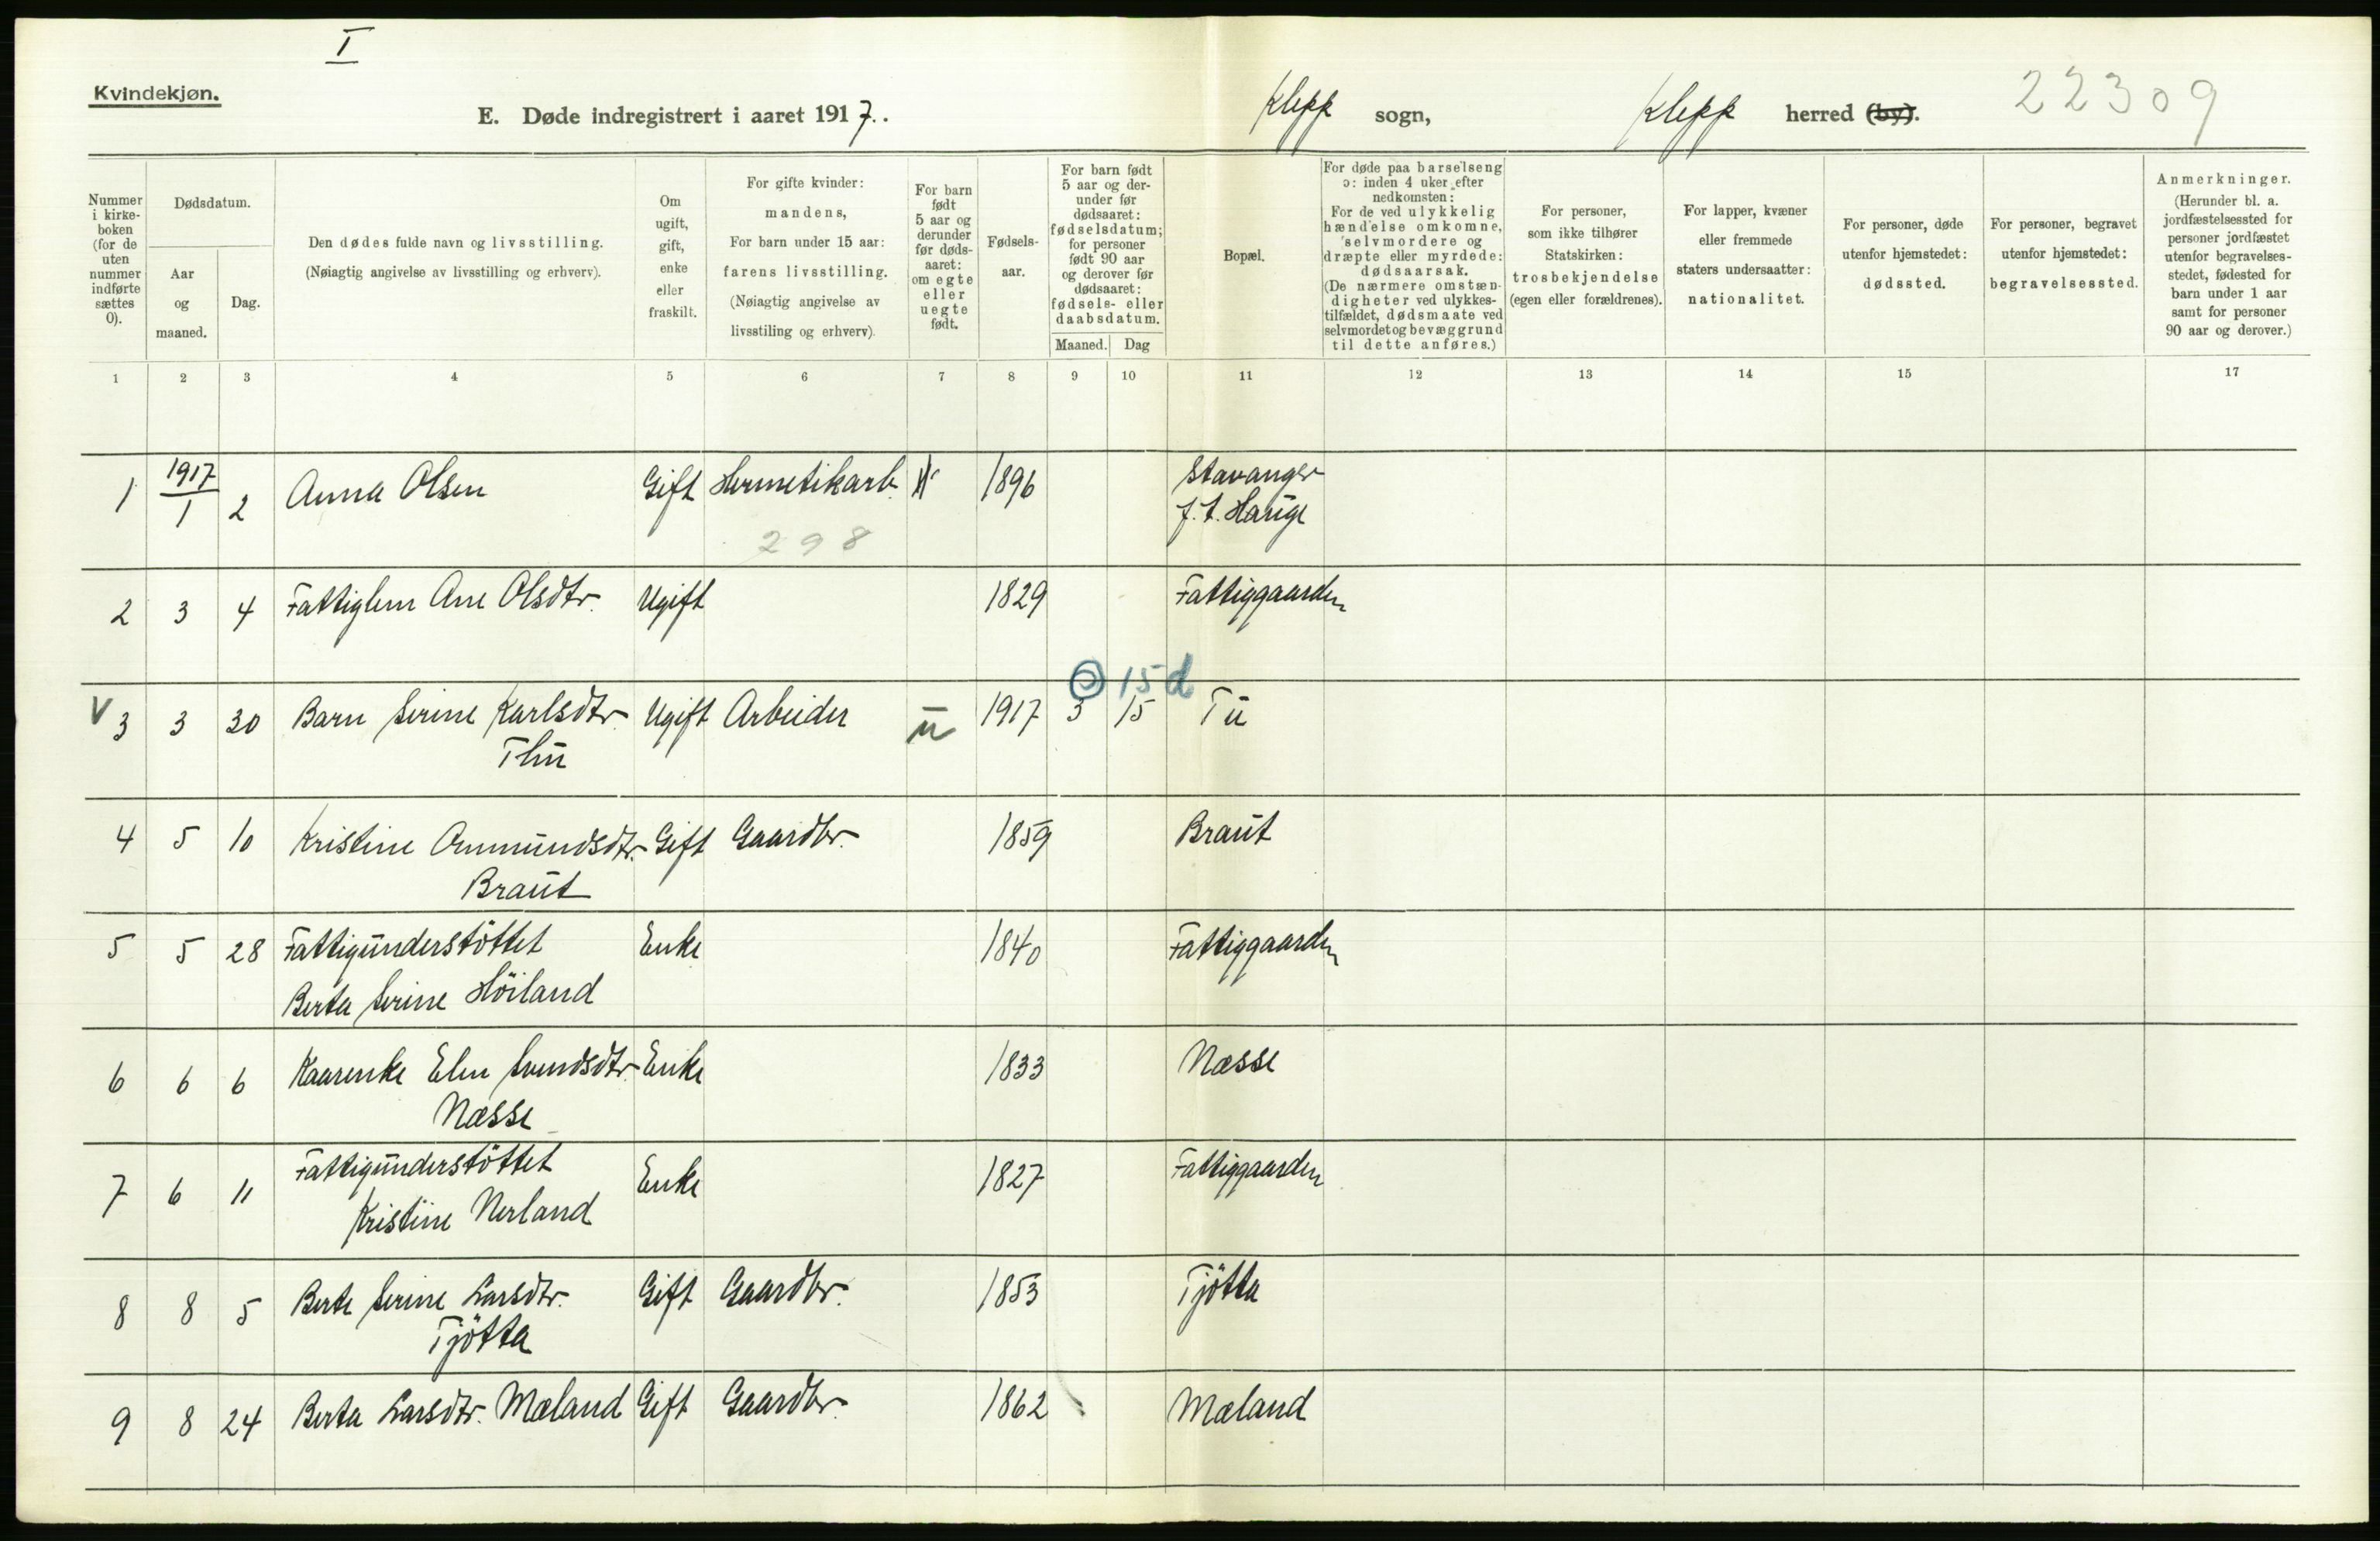 I
Kvindekjøn.
E. Døde indregistrert i aaret 1917.
Klepp sogn,
Klepp herred (by).
22309
Nummer i kirke-boken (for de uten nummer indførte sættes 0).
Dødsdatum.
Aar og maaned.
Dag.
Den dødes fulde navn og livsstilling.
(Nøiagtig angivelse av livsstilling og erhverv).
Om ugift, gift, enke eller fraskilt.
For gifte kvinder:
mandens,
For barn under 15 aar:
farens livsstilling.
(Nøiagtig angivelse av
livsstiling og erhverv).
For barn født 5 aar og derunder før døds-aaret: om egte eller uegte født.
Fødsels-aar.
For barn født 5 aar og der-under før dødsaaret: fødselsdatum; for personer født 90 aar og derover før dødsaaret: fødsels- eller daabsdatum.
Maaned. Dag
Bopæl.
For døde paa barselseng
ɔ: inden 4 uker efter
nedkomsten:
For de ved ulykkelig
hændelse omkomne,
selvmordere og
dræpte eller myrdede:
dødsaarsak.
(De nærmere omstæn-
digheter ved ulykkes-
tilfældet, dødsmaate ved
selvmord et og bevæggrund
til dette anføres.)
For personer,
som ikke tilhører
Statskirken:
trosbekjendelse
(egen eller forældrenes).
For lapper, kvæner
eller fremmede
staters undersaatter:
nationalitet.
For personer, døde
utenfor hjemstedet:
dødssted.
For personer, begravet
utenfor hjemstedet:
begravelsessted.
Anmerkninger.
(Herunder bl. a.
jordfæstelsessted for
personer jordfæstet
utenfor begravelses-
stedet, fødested for
barn under 1 aar
samt for personer
90 aar og derover.)
1 2 3 4 5 6 7 8 9 10 11 12 13 14 15 17
1 1917/1 2 Anna Olsen Gift Hermetikarb. 1896 Stavanger
f. t. Hauge
298
2 3 4 Fattiglem Ane Olsdtr. Ugift 1829 Fattiggaarden
0 15 d
V 3 3 30 Barn Serine Karlsdtr Ugift Arbeider u 1917 3 15 Tu
Thu
4 5 10 Kristine Ommundsdtr. Gift Gaardbr. 1859 Braut
Braut
5 5 28 Fattigunderstöttet Enke 1840 Fattiggaarden
Berta Serine Höiland
6 6 6 Kaarenke Elen Svendsdtr. Enke 1833 Næsse
Næsse
7 6 11 Fattigunderstöttet Enke 1827 Fattiggaarden
Kristine Nerland
8 8 5 Berte Serine Larsdtr. Gift Gaardbr. 1853 Tjötta
Tjötta
9 8 24 Berta Larsdtr. Mæland Gift Gaardbr. 1862 Mæland